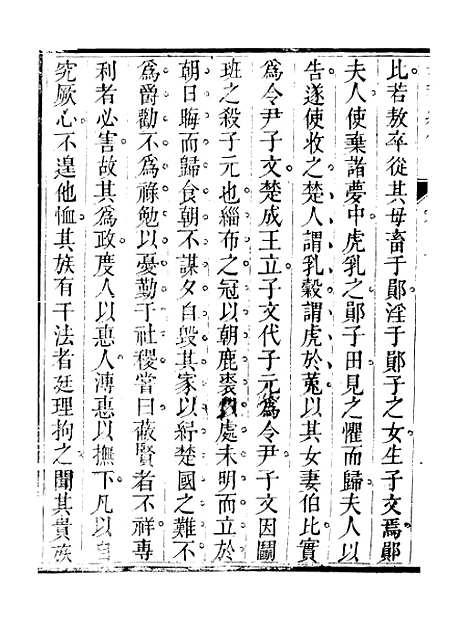 比若敖卒從其母畜于䢵淫于䢵子之女生子文焉䢵
夫人使棄諸夢中虎乳之䢵子田見之懼而歸夫人以
告遂使收之楚人謂乳穀謂虎於菟以其女妻伯比實
爲令尹子文楚成王立子文代子元爲令尹子文因鬭
班之殺子元也緇布之冠以朝鹿裘以處未明而立於
朝日晦而歸食朝不謀夕自毀其家以紓楚國之難不
爲爵勸不爲祿勉以憂勤于社稷嘗曰蔽賢者不祥專
利者必害故其爲政度人以惠人溥惠以撫下凡以自
究厥心不遑他恤其族有干法者廷理拘之聞其貴族